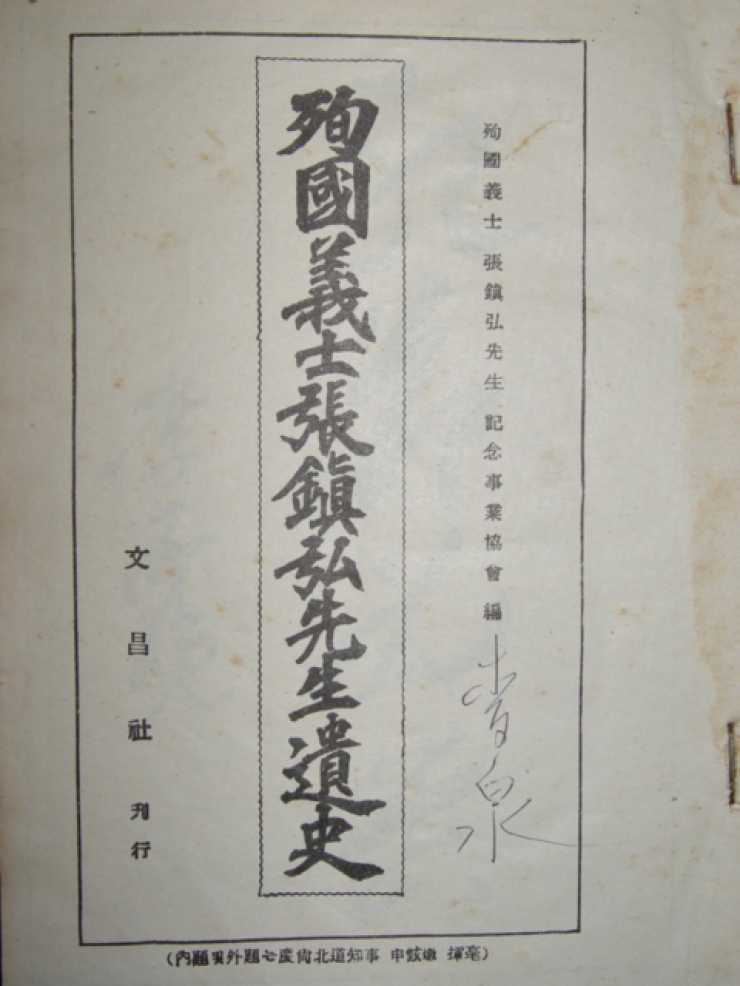 殉國義士 張鎭弘先生 記念事業協會 編
殉國義士張鎭弘先生遺史
文昌社 刊行
(內題및外題는慶尙北道知事 申鉉燉 揮毫)